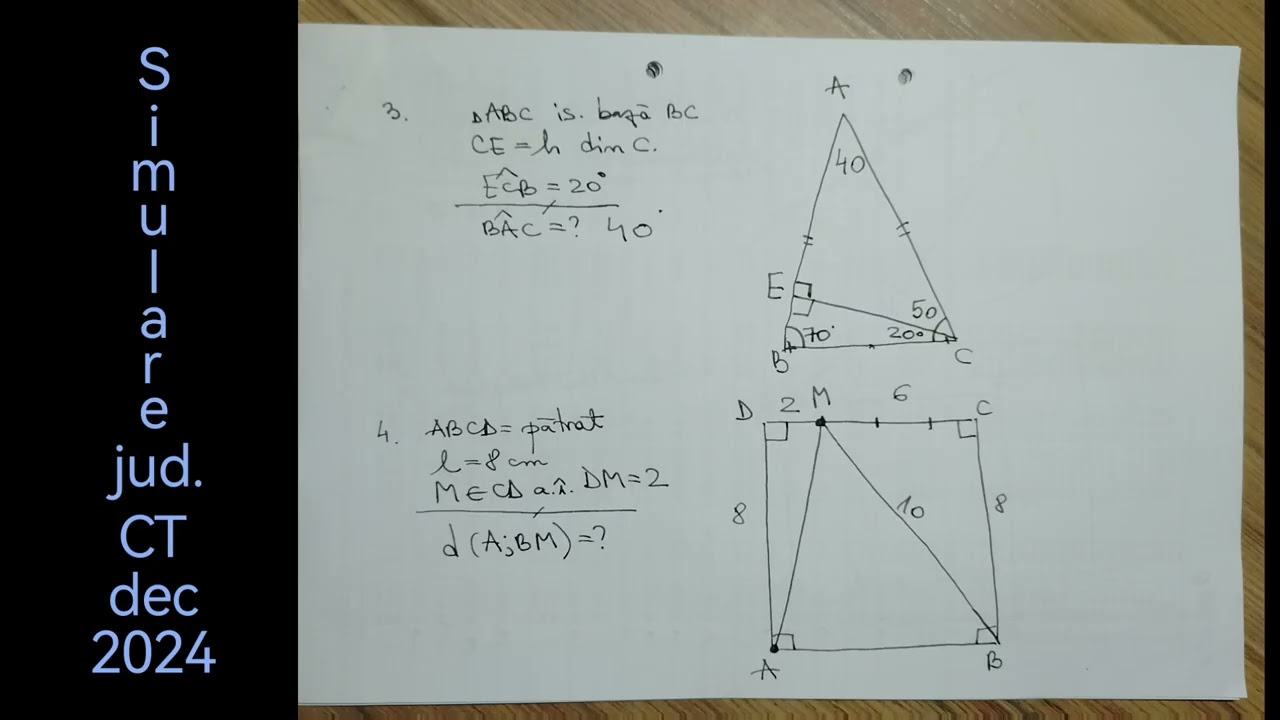 Simulare
jud.
CT
dec
2024
3. ΔABC is. bază BC
CE = h din C.
EĈB = 20°
BÂC = ? 40°
A
40
E
50
70°
20°
B
C
4. ABCD = pătrat
l = 8 cm
M ∈ CD a.î. DM = 2
d (A; BM) = ?
D 2 M 6 C
8
10
8
A
B